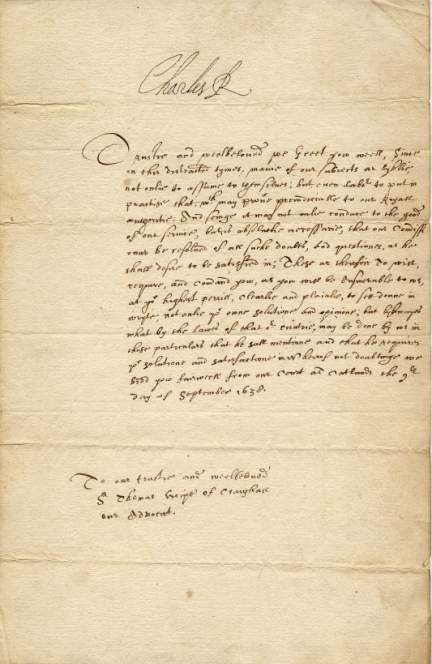 Charles R
Trustie and welbeloued we Greet you well, Since
in this distracted tymes, manie of our subiects ar
not onlie to assume to themselues, but even labor to put in
practise that may prove preiudiciall to our Royall
authoritie: And seing it may not onlie conduce to the good
of our seruice, but is absolutlie necessarie, that our
may be resolued of all such doubts, and questions, as he
shall desire to be satisfied in; These ar therfor to will,
require, and Comand you, as you will be answerable to us,
at yor highest perrill, clearlie and plainlie, to set downe in
wryte, not onlie yor owne solutions and opinions, but
what by the lawes of that or cuntrie, may be done by us in
these particulars that he sall mentione and that he requires
yor solutione and satisfactione in: Wherof not doubting we
bid you farewell from our Court at Oatlands the 9th
day of September 1638.
To our trustie and welbeloued
Sr Thomas Hope of Craighall
our Advocat.